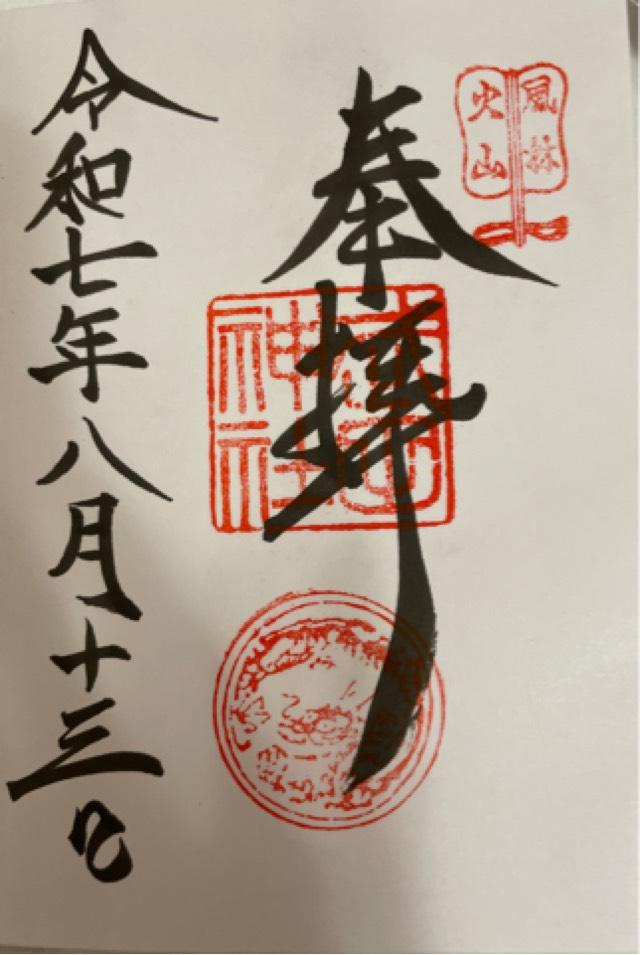 風林
火山
奉拝
武田
神社
令和七年八月十三日